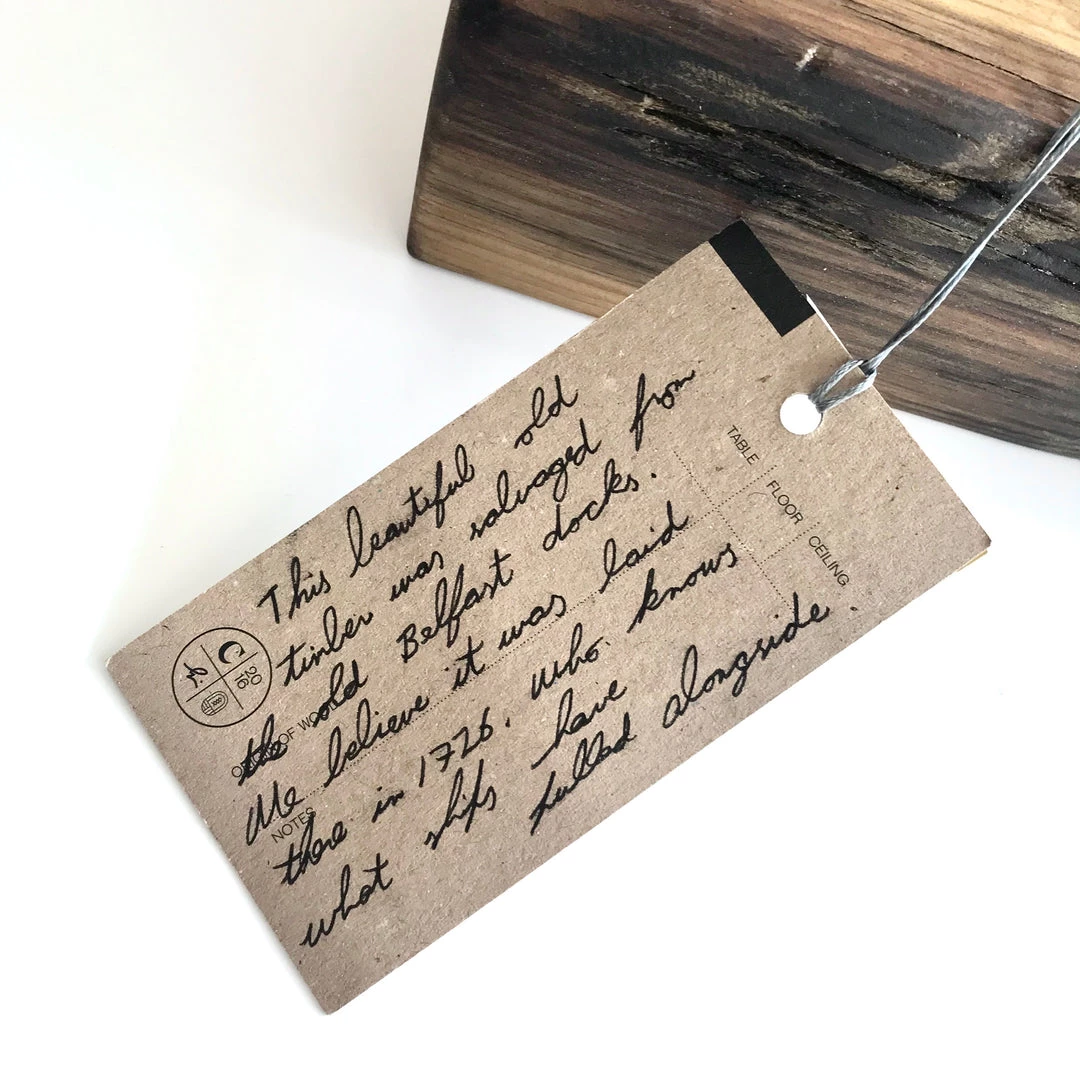 This beautiful old
timber was salvaged from
the old Belfast docks.
We believe it was laid
there in 1726. who knows
what ships have
pulled alongside.
TABLE
FLOOR
CEILING
OF WOOD
NOTES
20
16